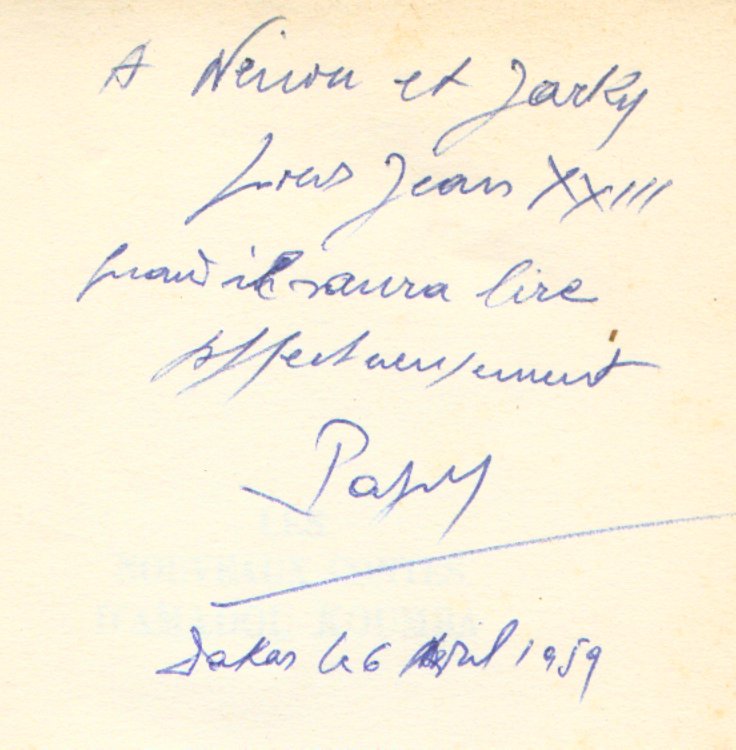 A et
Jean XXIII
quand il saura lire
Affectueusement
Papy
Dakar le 6 Avril 1959